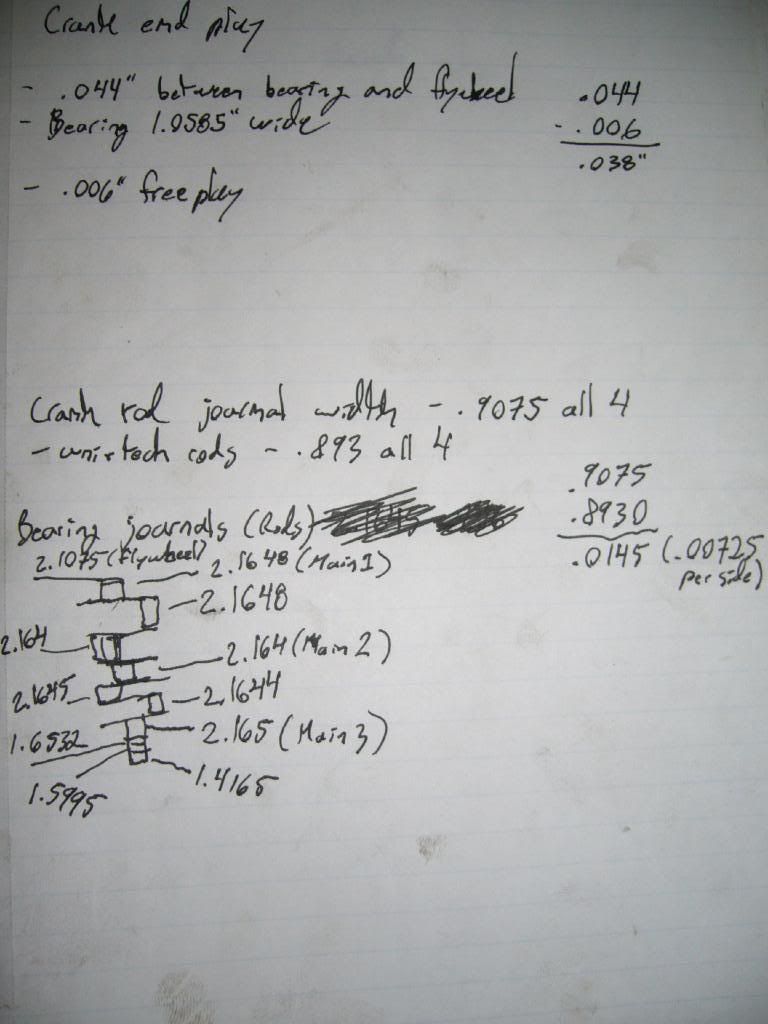 Crank end play
- .044" between bearing and flywheel
.044
- Bearing 1.0585" wide
- .006
.038"
- .006" free play
Crank rod journal width - .9075 all 4
- uni-tech rods - .893 all 4
.9075
.8930
.0145 (.00725 per side)
Bearing journals (Rods)
2.1075 (flywheel)
2.1648 (Main 1)
2.1648
2.164
2.164 (Main 2)
2.1645
2.1644
2.165 (Main 3)
1.6532
1.5995
1.4165